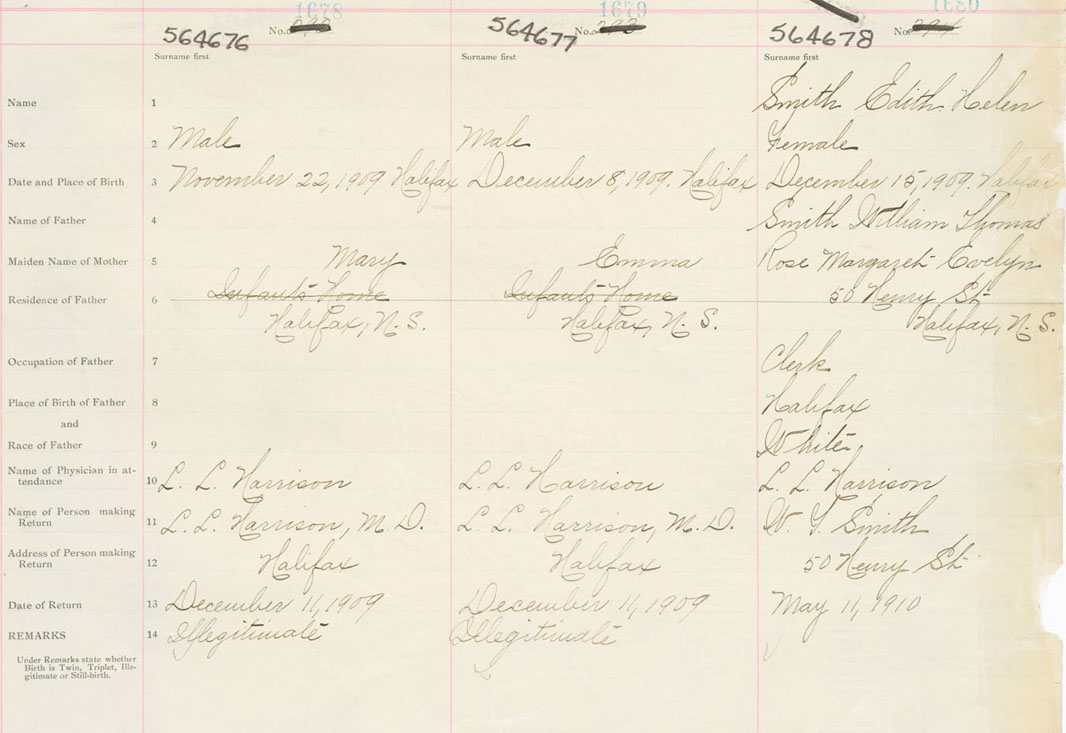 1678 1679 1680
564676 No. 564677 No. 293 564678 No. 294
Surname first Surname first Surname first
Name 1 Smith Edith Helen
Sex 2 Male Male Female
Date and Place of Birth 3 November 22, 1909 Halifax December 8, 1909. Halifax December 15, 1909. Halifax
Name of Father 4 Smith William Thomas
Maiden Name of Mother 5 Mary Emma Rose Margaret Evelyn
Residence of Father 6 Infants Home Infants Home 50 Henry St
Halifax, N. S. Halifax, N. S. Halifax, N. S.
Occupation of Father 7 Clerk
Place of Birth of Father 8 Halifax
and
Race of Father 9 White
Name of Physician in at-
tendance 10 L. L. Harrison L. L. Harrison L. L. Harrison
Name of Person making
Return 11 L. L. Harrison, M. D. L. L. Harrison, M. D. W. T. Smith
Address of Person making
Return 12 Halifax Halifax 50 Henry St
Date of Return 13 December 11, 1909 December 11, 1909 May 11, 1910
REMARKS 14 Illegitimate Illegitimate
Under Remarks state whether
Birth is Twin, Triplet, Ille-
gitimate or Still-birth.